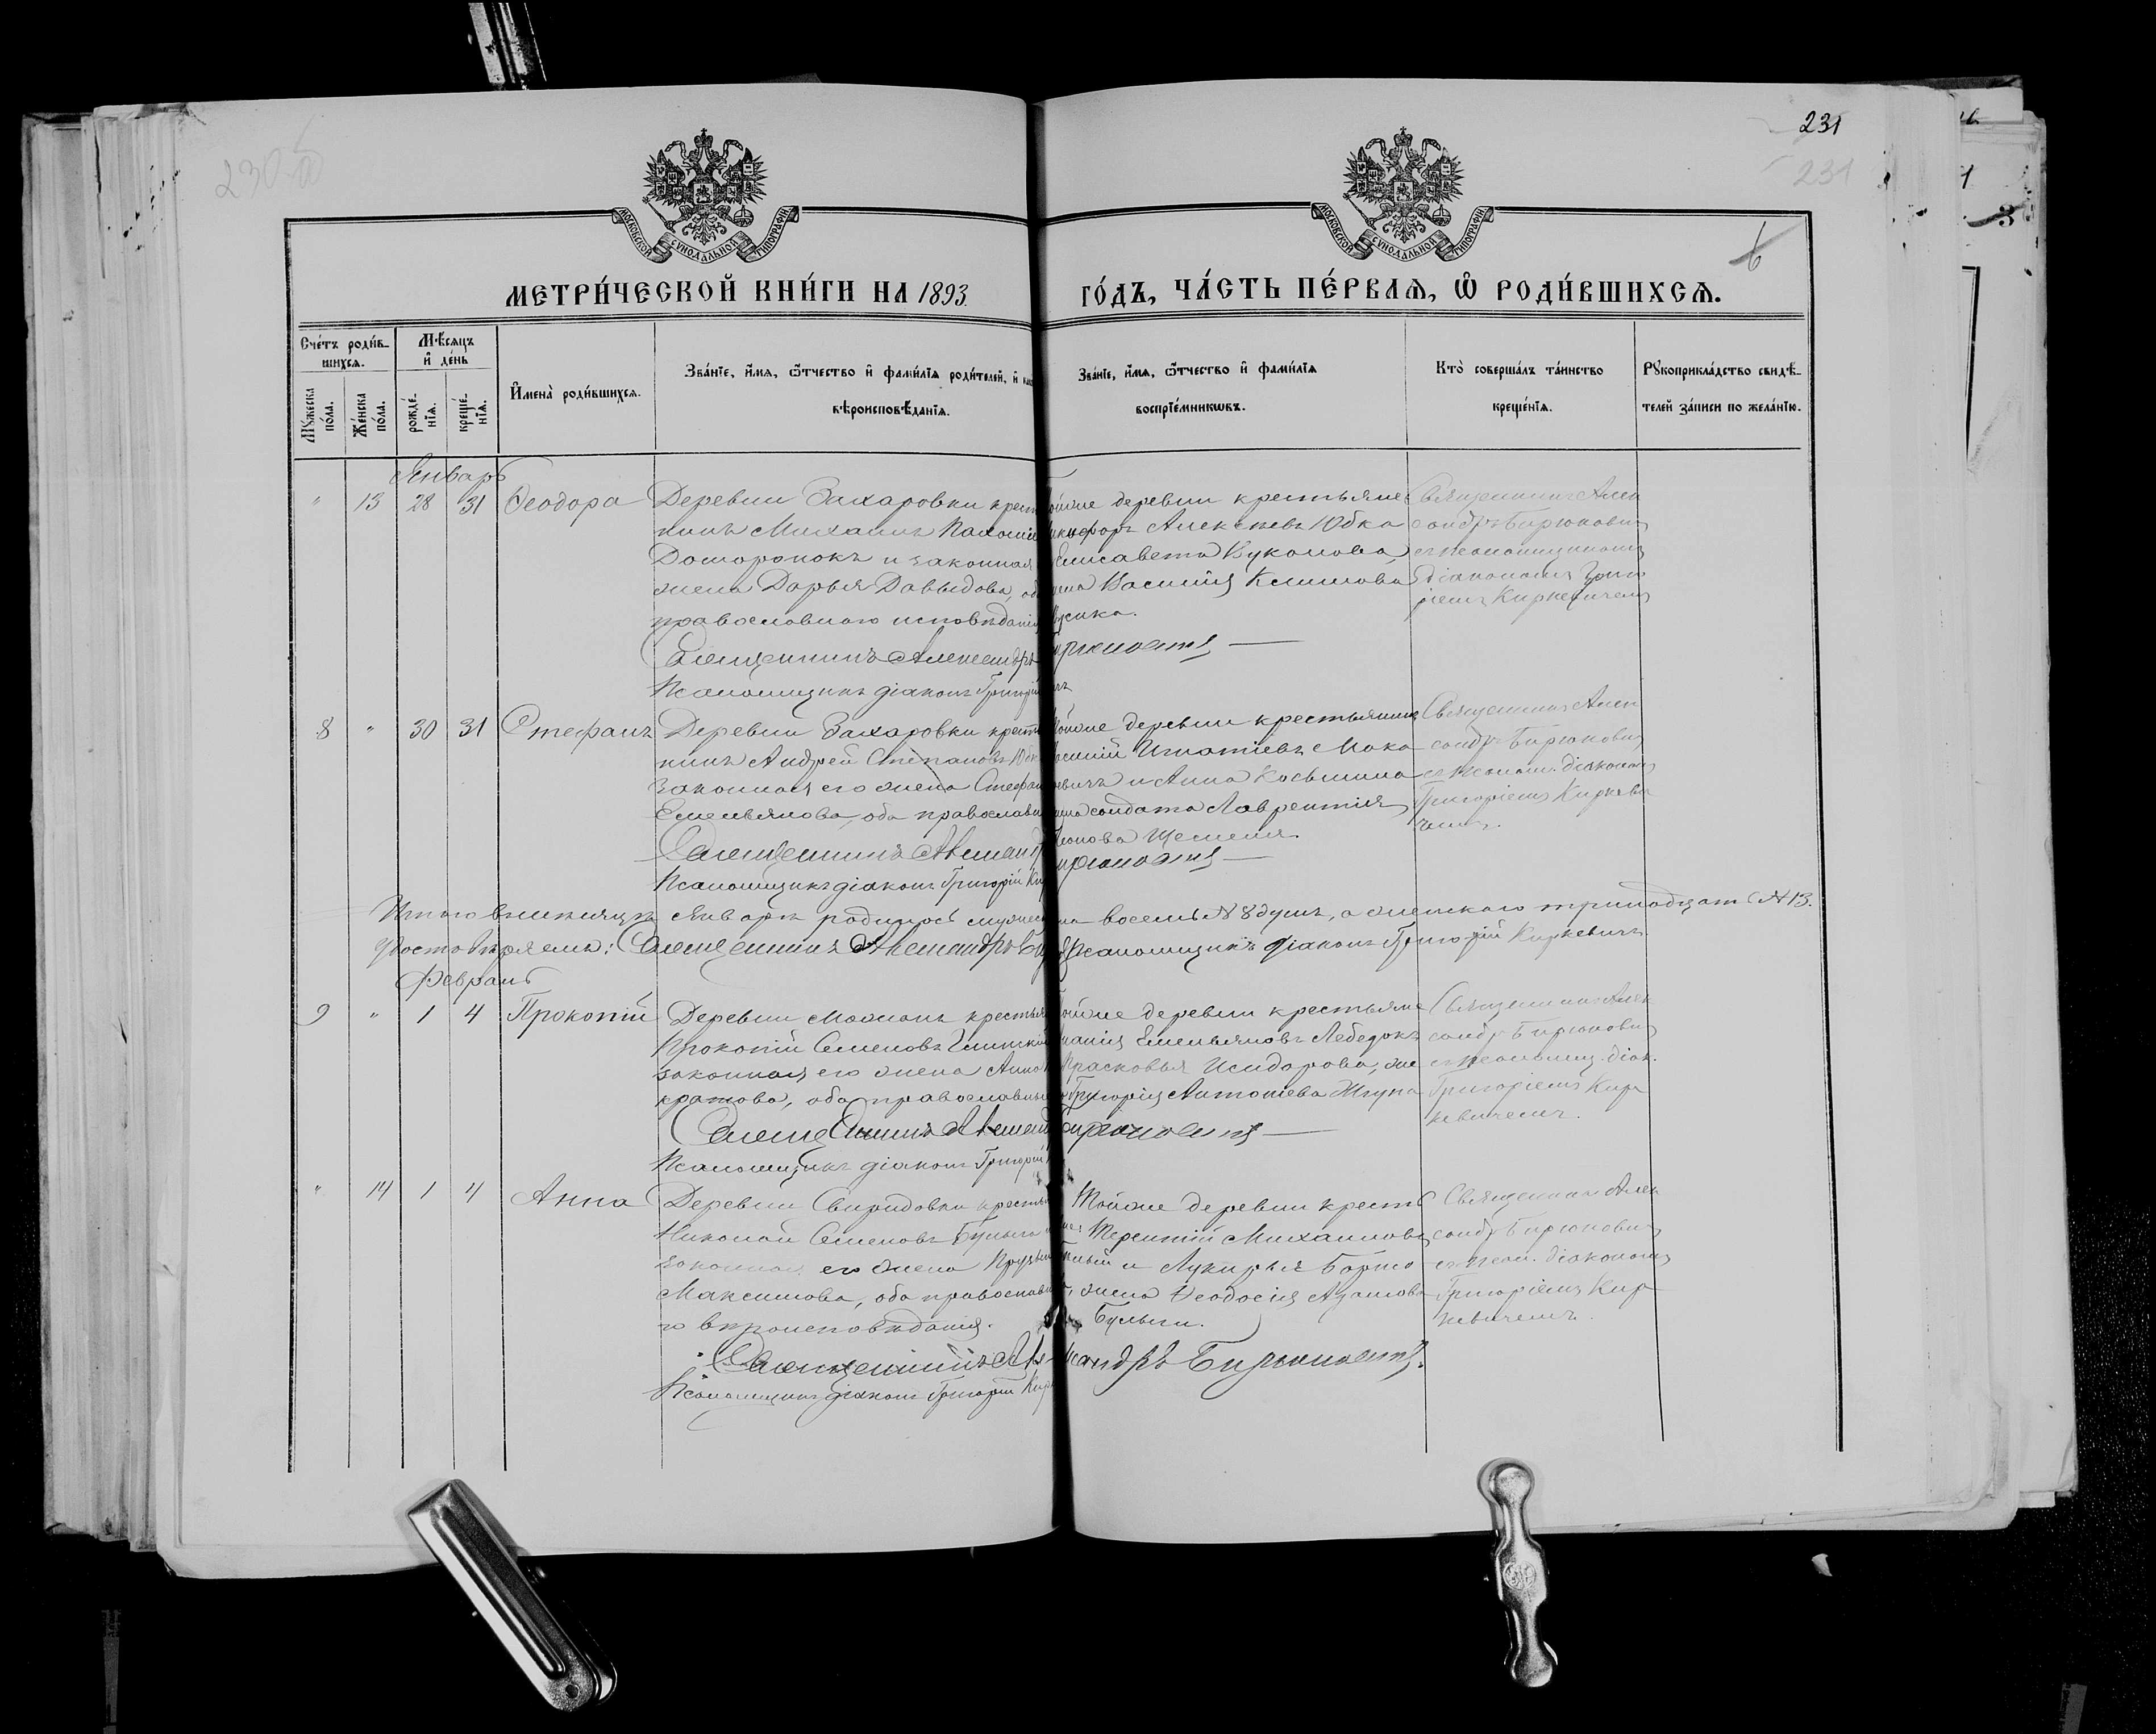 230 б
231
231
6
МОСКОВСКОЙ СУНОДАЛЬНОЙ ТИПОГРАФІИ
МОСКОВСКОЙ СУНОДАЛЬНОЙ ТИПОГРАФІИ
МЕТРИ́ЧЕСКОЙ КНИ́ГИ НА 1893
ГО́ДЪ, ЧА́СТЬ ПЕ́РВАЯ, Ѡ РОДИ́ВШИХСЯ.
Сче́тъ роди́в-
шихся.
Мꙋжеска по́ла.
Же́нска по́ла.
Мѣсяцъ
и де́нь
рожде́-
нія.
креще́-
нія.
Имена̀ роди́вшихся.
Зва́ніе, и́мя, ѻ́тчество и фами́лія роди́телей, и
вѣроисповѣ́данія.
Зва́ніе, и́мя, ѻ́тчество и фами́лія
воспріе́мникѡвъ.
Кто̀ соверша́лъ та́инство
креще́нія.
Рꙋкоприкла́дство свидѣ́-
телей за́писи по жела́нію.
Январь
" 13 28 31 Ѳеодора
Деревни Захаровки крест
нинъ Михаилъ
Доморонокъ и законная
жена Дарья Давыдова, об
православнаго исповѣданія
Священникъ Александръ
Псаломщикъ діаконъ Григорій
тойже деревни крестьяне
Никифоръ Алексѣевъ Юбка
Елисавета Вуколова
жена Василія Климова
Священникъ Алек
сандръ Бирюковичъ
съ псаломщикомъ
діакономъ Григо
ріемъ Киркевичемъ
8 " 30 31 Стефанъ
Деревни Захаровки крестья
нинъ Андрей Степановъ Юбк
законная его жена Стефан
Емельянова, оба православн
Священникъ Александръ
Псаломщикъ діаконъ Григорій Ки
тойже деревни крестьянинъ
Игнатіевъ Мака
и Анна Косьмина
жена солдата Лаврентія
Священникъ Алек
сандръ Бирюковичъ
съ псалом. діакономъ
Григоріемъ Киркеви
чемъ.
Итого въ мѣсяцѣ Январѣ родилось мужеска восемь № 8 душъ, а женскаго тринадцать № 13.
Удостовѣряемъ: Священникъ Александръ Би Псаломщикъ діаконъ Григорій Киркевичъ
Февраль
9 " 1 4 Прокопій
Деревни крестья
Прокопій Семеновъ
законная его жена Анна
кратова, оба православн
Священникъ Александръ
Псаломщикъ діаконъ Григорій
тойже деревни крестьяне
Емельяновъ Лебедокъ
Прасковья Исидорова, же
на Григорія Антоніева
Священникъ Алек
сандръ Бирюковичъ
съ псаломщ. діак.
Григоріемъ Кир
кевичемъ.
" 14 1 4 Анна
Деревни Свиридовки крестья
Николай Семеновъ
законная его жена
Максимова, оба православна
го вѣроисповѣданія.
Священникъ Александръ Бирюковичъ.
Псаломщикъ діаконъ Григорій Кир
Тойже деревни кресть
яне Терентій Михаиловъ
и Лукирья
жена Ѳеодосія Адамова
Священникъ Алек
сандръ Бирюковичъ
съ псал. діакономъ
Григоріемъ Кир
кевичемъ.